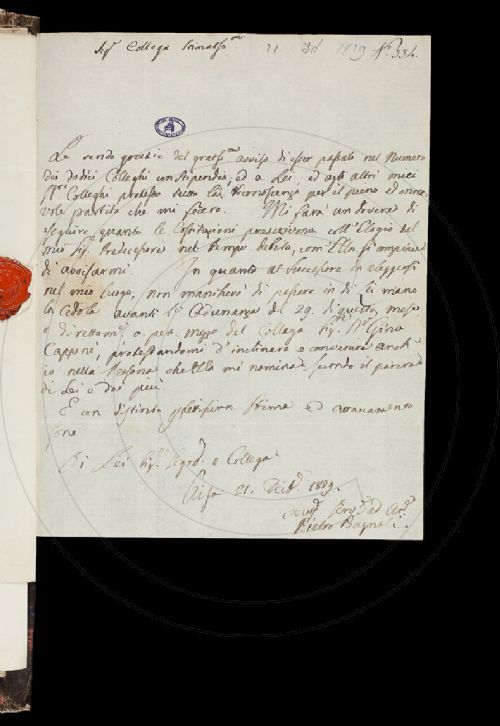 Sig.r Collega Stimatiss.mo 21 Dec 1829 N.o 334.
Le rendo grazie del graziss.mo avviso di esser passato nel Numero
dei dodici Colleghi con Stipendio, ed a Lei, ed agli altri miei
Sig.ri Colleghi protesto tutta la riconoscenza per il pieno ed onore
vole partito che mi fecero. Mi farà un dovere di
eseguire quanto le Costituzioni prescrivono coll'Elogio del
mio Sig.r Predecessore nel tempo debito, com'Ella si compiace
di avvisarmi. In quanto al Successore da eleggersi
nel mio luogo, non mancherò di passare in di Lei mano
la cedola avanti l'Adunanza de' 29. di questo mese
o direttam.e o per mezzo del Collega Sig.r Gino
Capponi, protestandomi d'inclinare e convenire anch'
io nella Persona che Ella mi nomina, secondo il parere
di Lei e dei più
E con distinta stima ed attaccamento
sono
Di Lei Sig.r Segret. e Collega
Pisa 21. Decb. 1829.
Serv. ed
Pietro Bagnoli.